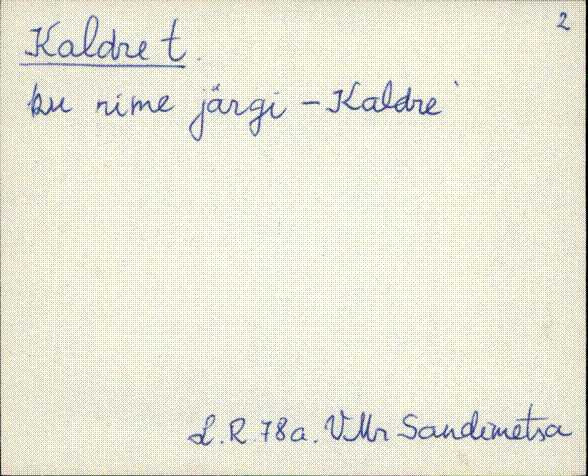 2
Kaldre t.
ku nime järgi – Kaldre
L. R. 78a. VMr Sandimetsa